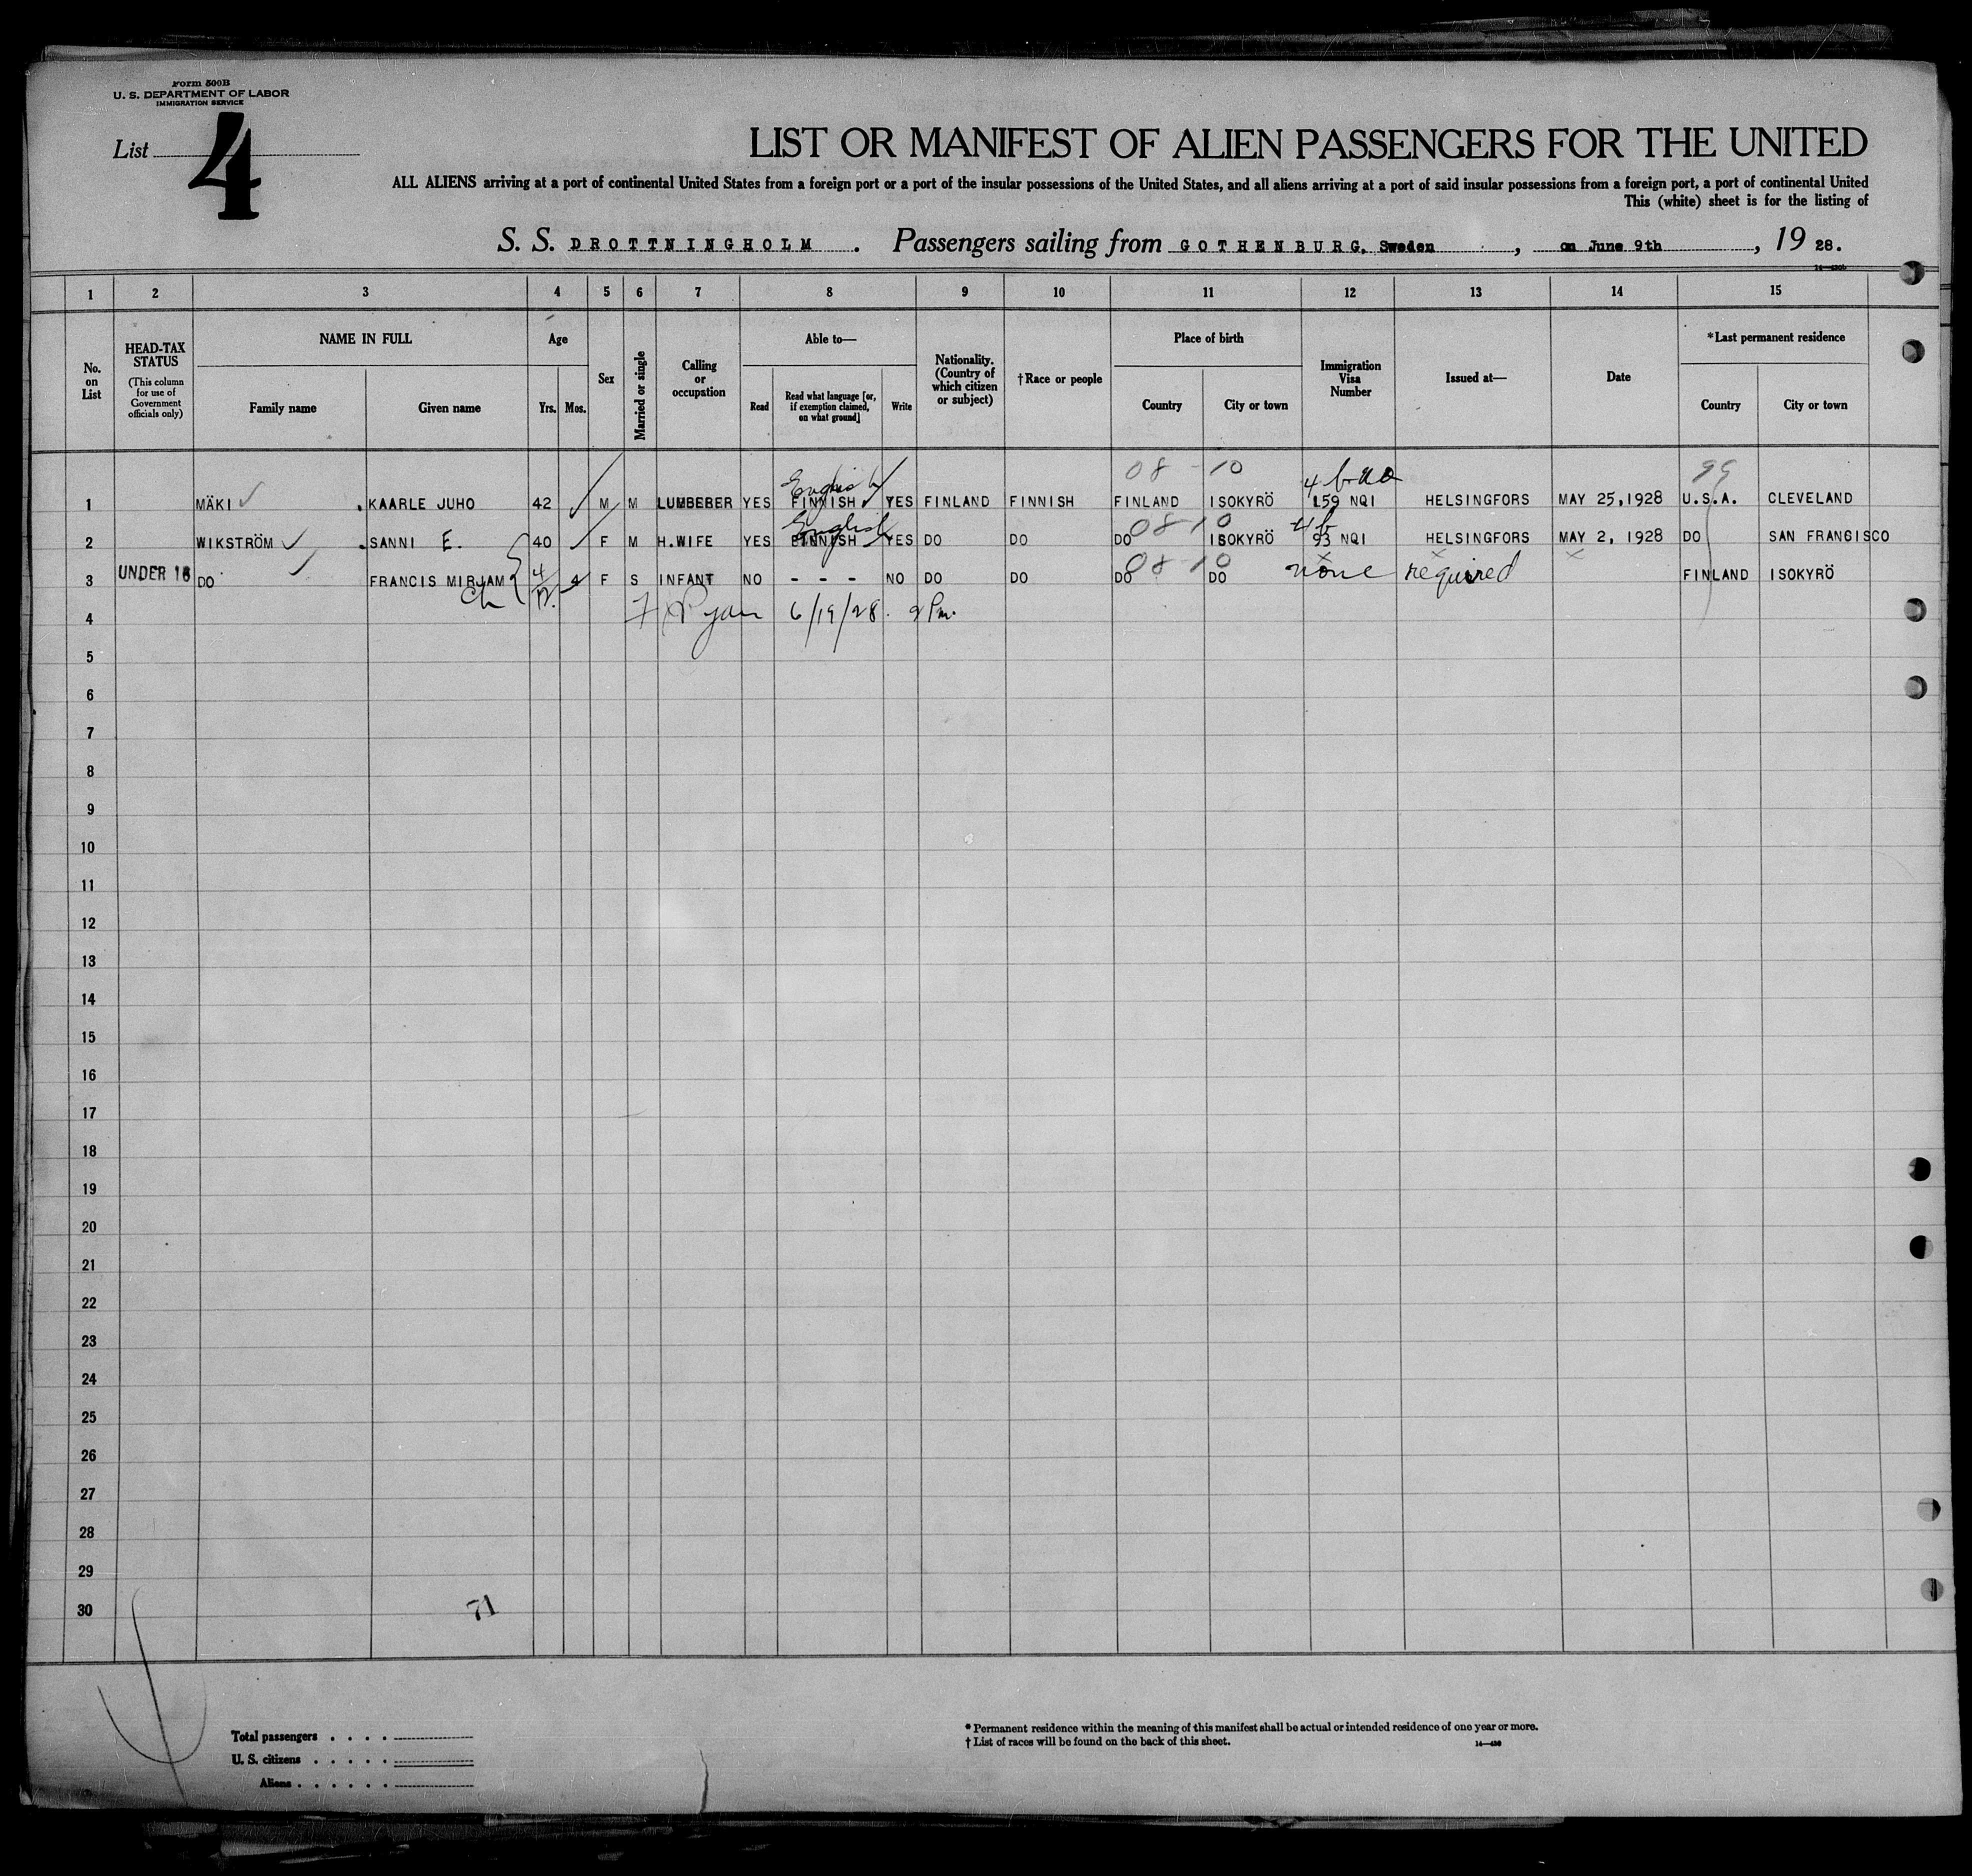 Form 500B
U. S. DEPARTMENT OF LABOR
IMMIGRATION SERVICE
List 4
LIST OR MANIFEST OF ALIEN PASSENGERS FOR THE UNITED
ALL ALIENS arriving at a port of continental United States from a foreign port or a port of the insular possessions of the United States, and all aliens arriving at a port of said insular possessions from a foreign port, a port of continental United
This (white) sheet is for the listing of
S. S. DROTTNINGHOLM. Passengers sailing from GOTHENBURG, Sweden, on June 9th, 19 28.
1 2 3 4 5 6 7 8 9 10 11 12 13 14 15
No. on List
HEAD-TAX STATUS
(This column for use of Government officials only)
NAME IN FULL
Family name
Given name
Age
Yrs. Mos.
Sex
Married or single
Calling or occupation
Able to—
Read
Read what language [or, if exemption claimed, on what ground]
Write
Nationality. (Country of which citizen or subject)
†Race or people
Place of birth
Country
City or town
Immigration Visa Number
Issued at—
Date
*Last permanent residence
Country
City or town
08 - 10 99
English
1 MÄKI KAARLE JUHO 42 M M LUMBERER YES FINNISH YES FINLAND FINNISH FINLAND ISOKYRÖ 159 NQI HELSINGFORS MAY 25,1928 U.S.A. CLEVELAND
English 08-10 4b
2 WIKSTRÖM SANNI E. 40 F M H.WIFE YES FINNISH YES DO DO DO ISOKYRÖ 93 NQI HELSINGFORS MAY 2, 1928 DO SAN FRANCISCO
08-10
3 UNDER 16 DO FRANCIS MIRJAM 4/12 4 F S INFANT NO - - - NO DO DO DO DO none required FINLAND ISOKYRÖ
Ch
4 Ryan 6/19/28. 2 Pm.
5
6
7
8
9
10
11
12
13
14
15
16
17
18
19
20
21
22
23
24
25
26
27
28
29
30
71
Total passengers
U. S. citizens
Aliens
* Permanent residence within the meaning of this manifest shall be actual or intended residence of one year or more.
† List of races will be found on the back of this sheet.